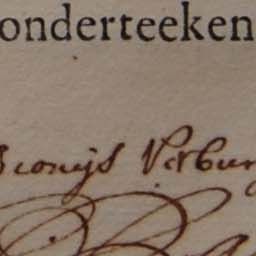 onderteeken
Dionijs Verburg